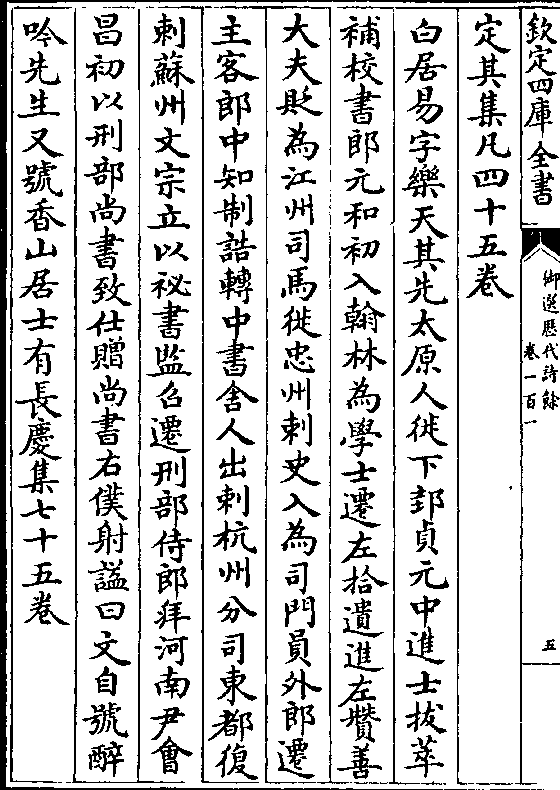 欽定四庫全書
御選歷代詩餘
卷一百一
五
定其集凡四十五卷
白居易字樂天其先太原人徙下邽貞元中進士拔萃
補校書郎元和初入翰林為學士遷左拾遺進左贊善
大夫貶為江州司馬徙忠州刺史入為司門員外郎遷
主客郎中知制誥轉中書舍人出刺杭州分司東都復
刺蘇州文宗立以祕書監召遷刑部侍郎拜河南尹會
昌初以刑部尚書致仕贈尚書右僕射謚曰文自號醉
吟先生又號香山居士有長慶集七十五卷